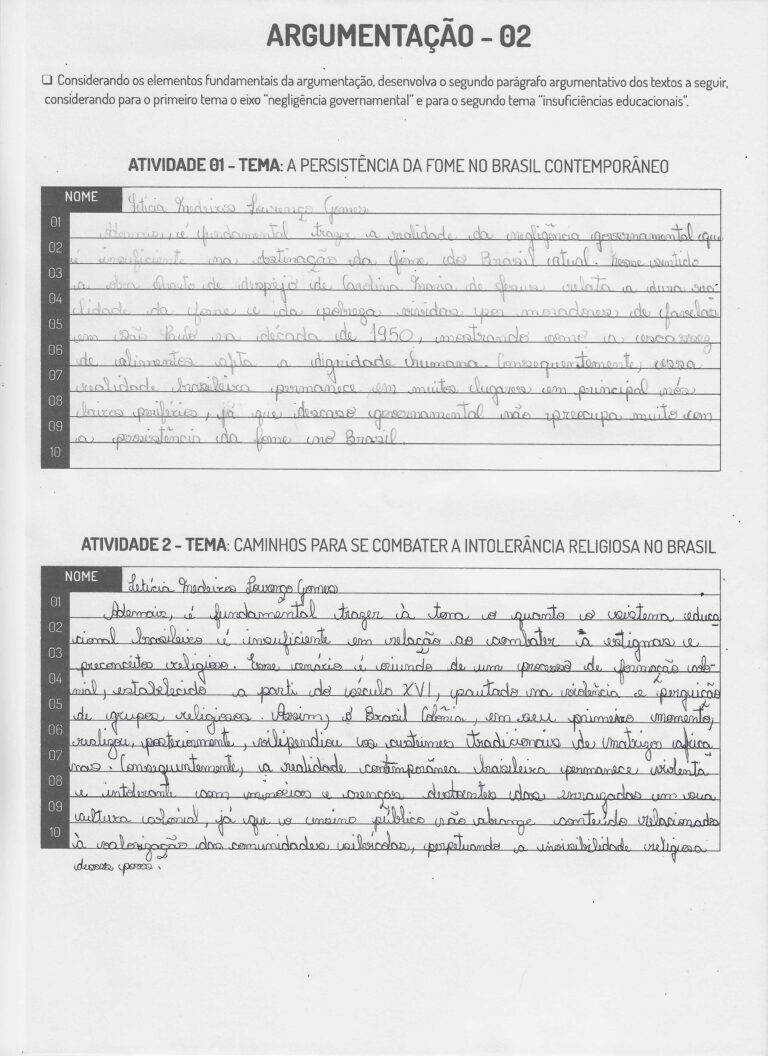 ARGUMENTAÇÃO - 02
❑ Considerando os elementos fundamentais da argumentação, desenvolva o segundo parágrafo argumentativo dos textos a seguir,
considerando para o primeiro tema o eixo "negligência governamental" e para o segundo tema "insuficiências educacionais".
ATIVIDADE 01 - TEMA: A PERSISTÊNCIA DA FOME NO BRASIL CONTEMPORÂNEO
NOME Letícia Medeiros Lourenço Gomes
01 Ademais, é fundamental trazer a realidade da negligência governamental que
02 é insuficiente na destinação da fome do Brasil atual. Nesse sentido
03 a obra Quarto de despejo de Carolina Maria de Jesus relata a dura rea-
04 lidade da fome e da pobreza vividas por moradores de favelas
05 em são Paulo na década de 1950, mostrando como a escassez
06 de alimentos afta a dignidade humana. Consequentemente, essa
07 realidade brasileira permanece em muitos lugares em principal nós
08 bairos periféricos, já que descaso governamental não preocupa muito com
09 a persistência da fome no Brasil.
10
ATIVIDADE 2 - TEMA: CAMINHOS PARA SE COMBATER A INTOLERÂNCIA RELIGIOSA NO BRASIL
NOME Letícia Medeiros Lourenço Gomes
01 Ademais, é fundamental trazer à tona o quanto o sistema educa
02 cional brasileiro é insuficiente em relação ao combater à estigmas e
03 preconceitos religioso. Esse cenário é oriundo de um processo de formação colo-
04 nial, estabelecido a parti do século XVI, pautado na violência e perguição
05 de grupos religiosos. Assim, o Brasil Colônia, em seu primeiro momento,
06 realizou, posteriormente, vilipendiou os custumes tradicionais de matrizes africa
07 nas. Consequintemente, a realidade contemporânea brasileira permanece violenta
08 e intolerante com minórias e crenças destoantes das enraizadas em sua
09 cultura colonial, já que o ensino público não abrange conteúdo relacionados
10 à valorização das comunidades, perpetuando a invisibilidade religiosa
desses povos.